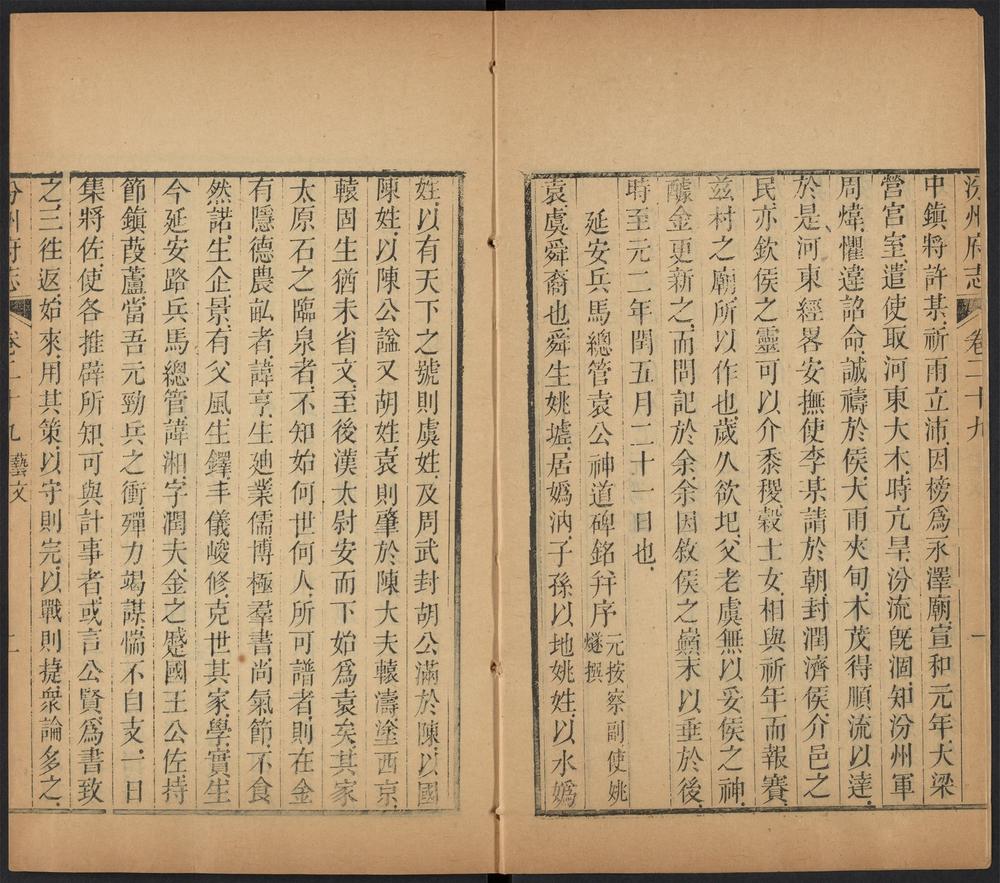 汾州府志 卷二十九 一
中鎮將許某祈雨立沛因榜爲永澤廟宣和元年大梁
營宮室遣使取河東大木時亢旱汾流旣涸知汾州軍
周煒懼違詔命誠禱於侯大雨夾旬木茂得順流以達
於是河東經畧安撫使李某請於朝封潤濟侯介邑之
民亦欽侯之靈可以介黍稷穀士女相與祈年而報賽
兹村之廟所以作也歲久欲圮父老虞無以妥侯之神
醵金更新之而問記於余余因敘侯之巔末以垂於後
時至元二年閏五月二十一日也
延安兵馬總管袁公神道碑銘幷序 元按察副使姚燧撰
袁虞舜裔也舜生姚墟居嬀汭子孫以地姚姓以水嬀
姓以有天下之號則虞姓及周武封胡公滿於陳以國
陳姓以陳公謚又胡姓袁則肇於陳大夫轅濤塗西京
轅固生猶未省文至後漢太尉安而下始爲袁矣其家
太原石之臨泉者不知始何世何人所可譜者則在金
有隱德農畝者諱亨生廸業儒博極羣書尚氣節不食
然諾生企景有父風生鐸丰儀峻修克世其家學實生
今延安路兵馬總管諱湘字潤夫金之蹙國王公佐持
節鎭葭蘆當吾元勁兵之衝殫力竭謀惴不自支一日
集將佐使各推辟所知可與計事者或言公賢爲書致
之三往返始來用其策以守則完以戰則捷衆論多之
汾州府志 卷二十九 藝文 二